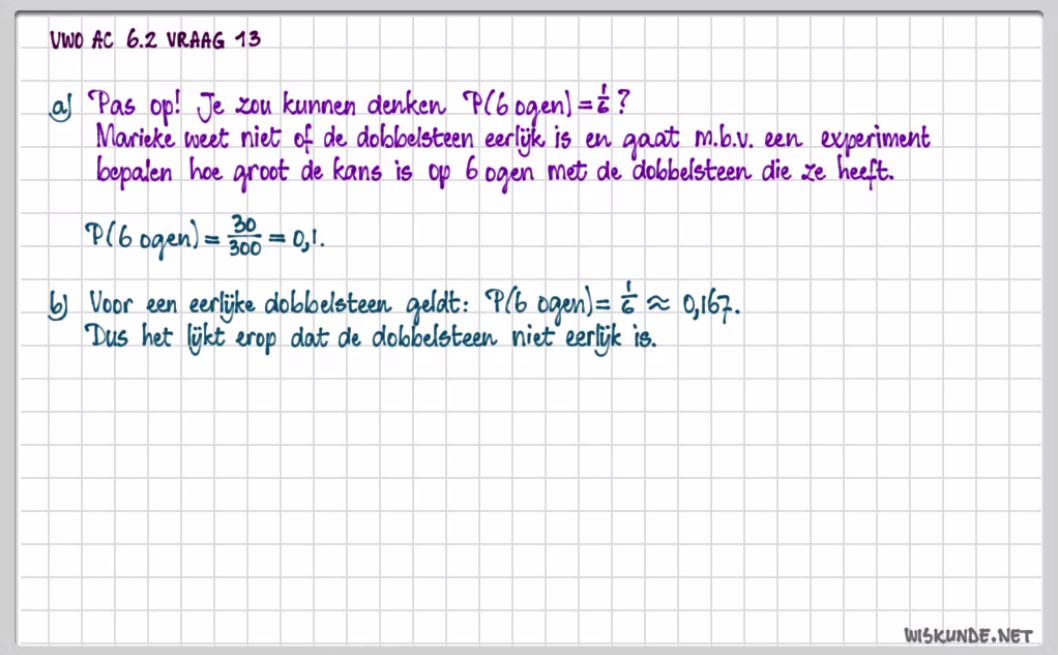 VWO AC 6.2 VRAAG 13
a) Pas op! Je zou kunnen denken P(6 ogen) = 1/6 ?
Marieke weet niet of de dobbelsteen eerlijk is en gaat m.b.v. een experiment
bepalen hoe groot de kans is op 6 ogen met de dobbelsteen die ze heeft.
P(6 ogen) = 30/300 = 0,1.
b) Voor een eerlijke dobbelsteen geldt: P(6 ogen) = 1/6 ≈ 0,167.
Dus het lijkt erop dat de dobbelsteen niet eerlijk is.
WISKUNDE.NET